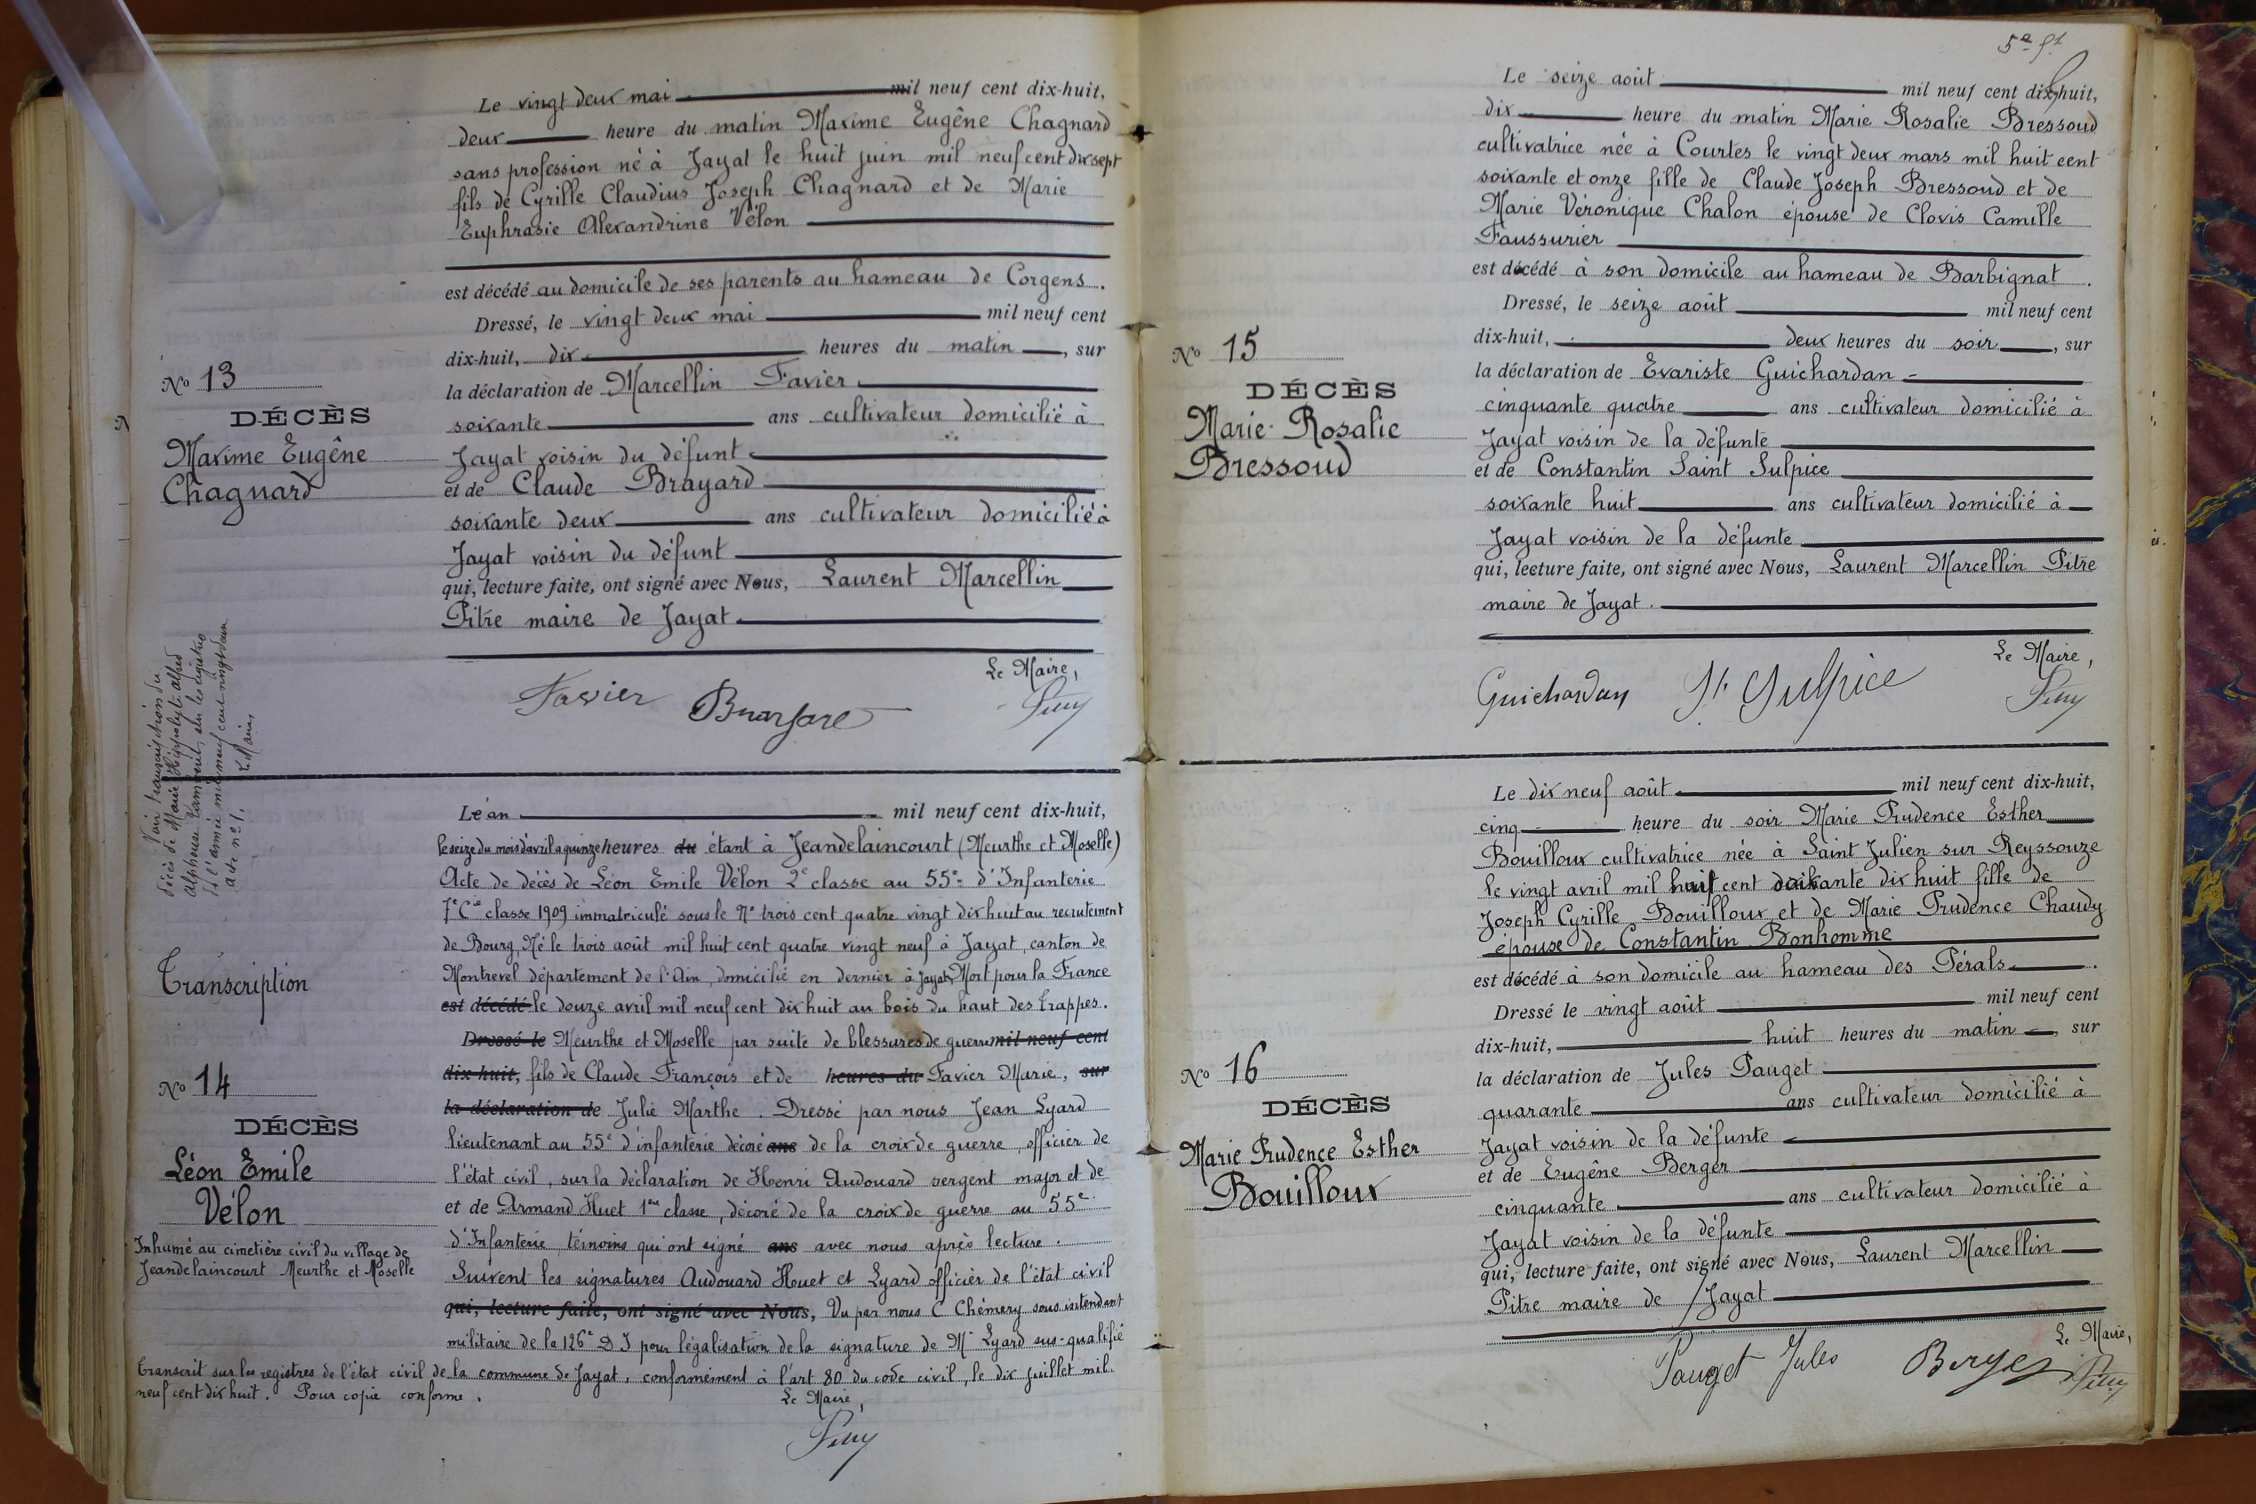 Le vingt deux mai mil neuf cent dix-huit,
deux heure du matin Maxime Eugêne Chagnard
sans profession né à Jayat le huit juin mil neuf cent dix sept
fils de Cyrille Claudius Joseph Chagnard et de Marie
Euphrasie Alexandrine Vélon
est décédé au domicile de ses parents au hameau de Corgens.
Dressé, le vingt deux mai mil neuf cent
dix-huit, dix heures du matin, sur
la déclaration de Marcellin Favier
soixante ans cultivateur domicilié à
Jayat voisin du défunt
et de Claude Brayard
soixante deux ans cultivateur domicilié à
Jayat voisin du défunt
qui, lecture faite, ont signé avec Nous, Laurent Marcellin
Pitre maire de Jayat
Le Maire,
Favier Brayard
No 13
DÉCÈS
Maxime Eugêne
Chagnard
Voir transcription du
décès de Marie Hippolyte Alfred
alphonse sur les registres
de l'année mil neuf cent vingt deux
acte no 1.
Le Maire,
L'an mil neuf cent dix-huit,
le seize du mois d'avril a quinze heures du étant à Jeandelaincourt (Meurthe et Moselle)
Acte de décès de Léon Emile Vélon 2e classe au 55e d'Infanterie
7e Cie classe 1909 immatriculé sous le No trois cent quatre vingt dix huit au recrutement
de Bourg, Né le trois août mil huit cent quatre vingt neuf à Jayat, canton de
Montrevel département de l'Ain, domicilié en dernier à Jayat, Mort pour la France
est décédé le douze avril mil neuf cent dix huit au bois du haut des trappes.
Dressé le Meurthe et Moselle par suite de blessures de guerre mil neuf cent
dix-huit, fils de Claude François et de heures du Favier Marie, sur
la déclaration de Julie Marthe. Dressé par nous Jean Lyard
lieutenant au 55e d'infanterie décoré ans de la croix de guerre, officier de
l'état civil, sur la déclaration de Henri Audouard sergent major et de
et de Armand Huet 1ere classe, décoré de la croix de guerre au 55e
d'Infanterie, témoins qui ont signé ans avec nous après lecture.
Suivent les signatures Audouard Houet et Lyard officier de l'état civil
qui, lecture faite, ont signé avec Nous, Vu par nous C Chémery sous intendant
militaire de la 126e D I pour légalisation de la signature de Mr Lyard sus-qualifié
Transcrit sur les registres de l'état civil de la commune de Jayat, conformément à l'art 80 du code civil, le dix juillet mil
neuf cent dix huit. Pour copie conforme.
Le Maire,
Transcription
No 14
DÉCÈS
Léon Emile
Vélon
Inhumé au cimetière civil du village de
Jeandelaincourt Meurthe et Moselle
5e ft
Le seize août mil neuf cent dix-huit,
dix heure du matin Marie Rosalie Bressoud
cultivatrice née à Courtes le vingt deux mars mil huit cent
soixante et onze fille de Claude Joseph Bressoud et de
Marie Véronique Chalon épouse de Clovis Camille
Faussurier
est décédé à son domicile au hameau de Barbignat.
Dressé, le seize août mil neuf cent
dix-huit, deux heures du soir, sur
la déclaration de Evariste Guichardan
cinquante quatre ans cultivateur domicilié à
Jayat voisin de la défunte
et de Constantin Saint Sulpice
soixante huit ans cultivateur domicilié à
Jayat voisin de la défunte
qui, lecture faite, ont signé avec Nous, Laurent Marcellin Pitre
maire de Jayat.
Le Maire,
Guichardan St Sulpice
No 15
DÉCÈS
Marie Rosalie
Bressoud
Le dix neuf août mil neuf cent dix-huit,
cinq heure du soir Marie Prudence Esther
Bouilloux cultivatrice née à Saint Julien sur Reyssouze
le vingt avril mil huit cent soixante dix huit fille de
Joseph Cyrille Bouilloux et de Marie Prudence Chaudy
épouse de Constantin Bonhomme
est décédé à son domicile au hameau des Pérals.
Dressé le vingt août mil neuf cent
dix-huit, huit heures du matin, sur
la déclaration de Jules Pauget
quarante ans cultivateur domicilié à
Jayat voisin de la défunte
et de Eugêne Berger
cinquante ans cultivateur domicilié à
Jayat voisin de la défunte
qui, lecture faite, ont signé avec Nous, Laurent Marcellin
Pitre maire de Jayat
Le Maire,
Pauget Jules Berger
No 16
DÉCÈS
Marie Prudence Esther
Bouilloux